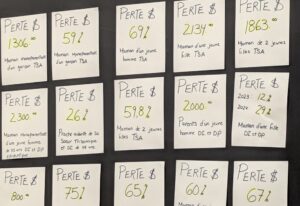 PERTE $
1306.00
Maman monoparentale
d'un garçon TSA
PERTE $
59%
Maman monoparentale
d'un garçon TSA
PERTE $
69%
Maman d'un jeune
homme TSA
PERTE $
2134.00
Maman d'une jeune
fille TSA
PERTE $
1863.00
Maman de 2 jeunes
filles TSA
PERTE $
2300.00
Maman monoparentale
d'un jeune homme
DI et DP
PERTE $
26%
Proche aidante de sa
soeur Trisomique
et DI de
PERTE $
59.8%
Maman de 2 jeunes
TSA
PERTE $
2000.00
Parents d'un jeune
homme DI et DP
PERTE $
2023 12%
2024 29%
Maman d'une fille
DI et DP
PERTE $
800.00
PERTE $
75%
PERTE $
65%
PERTE $
60%
PERTE $
67%